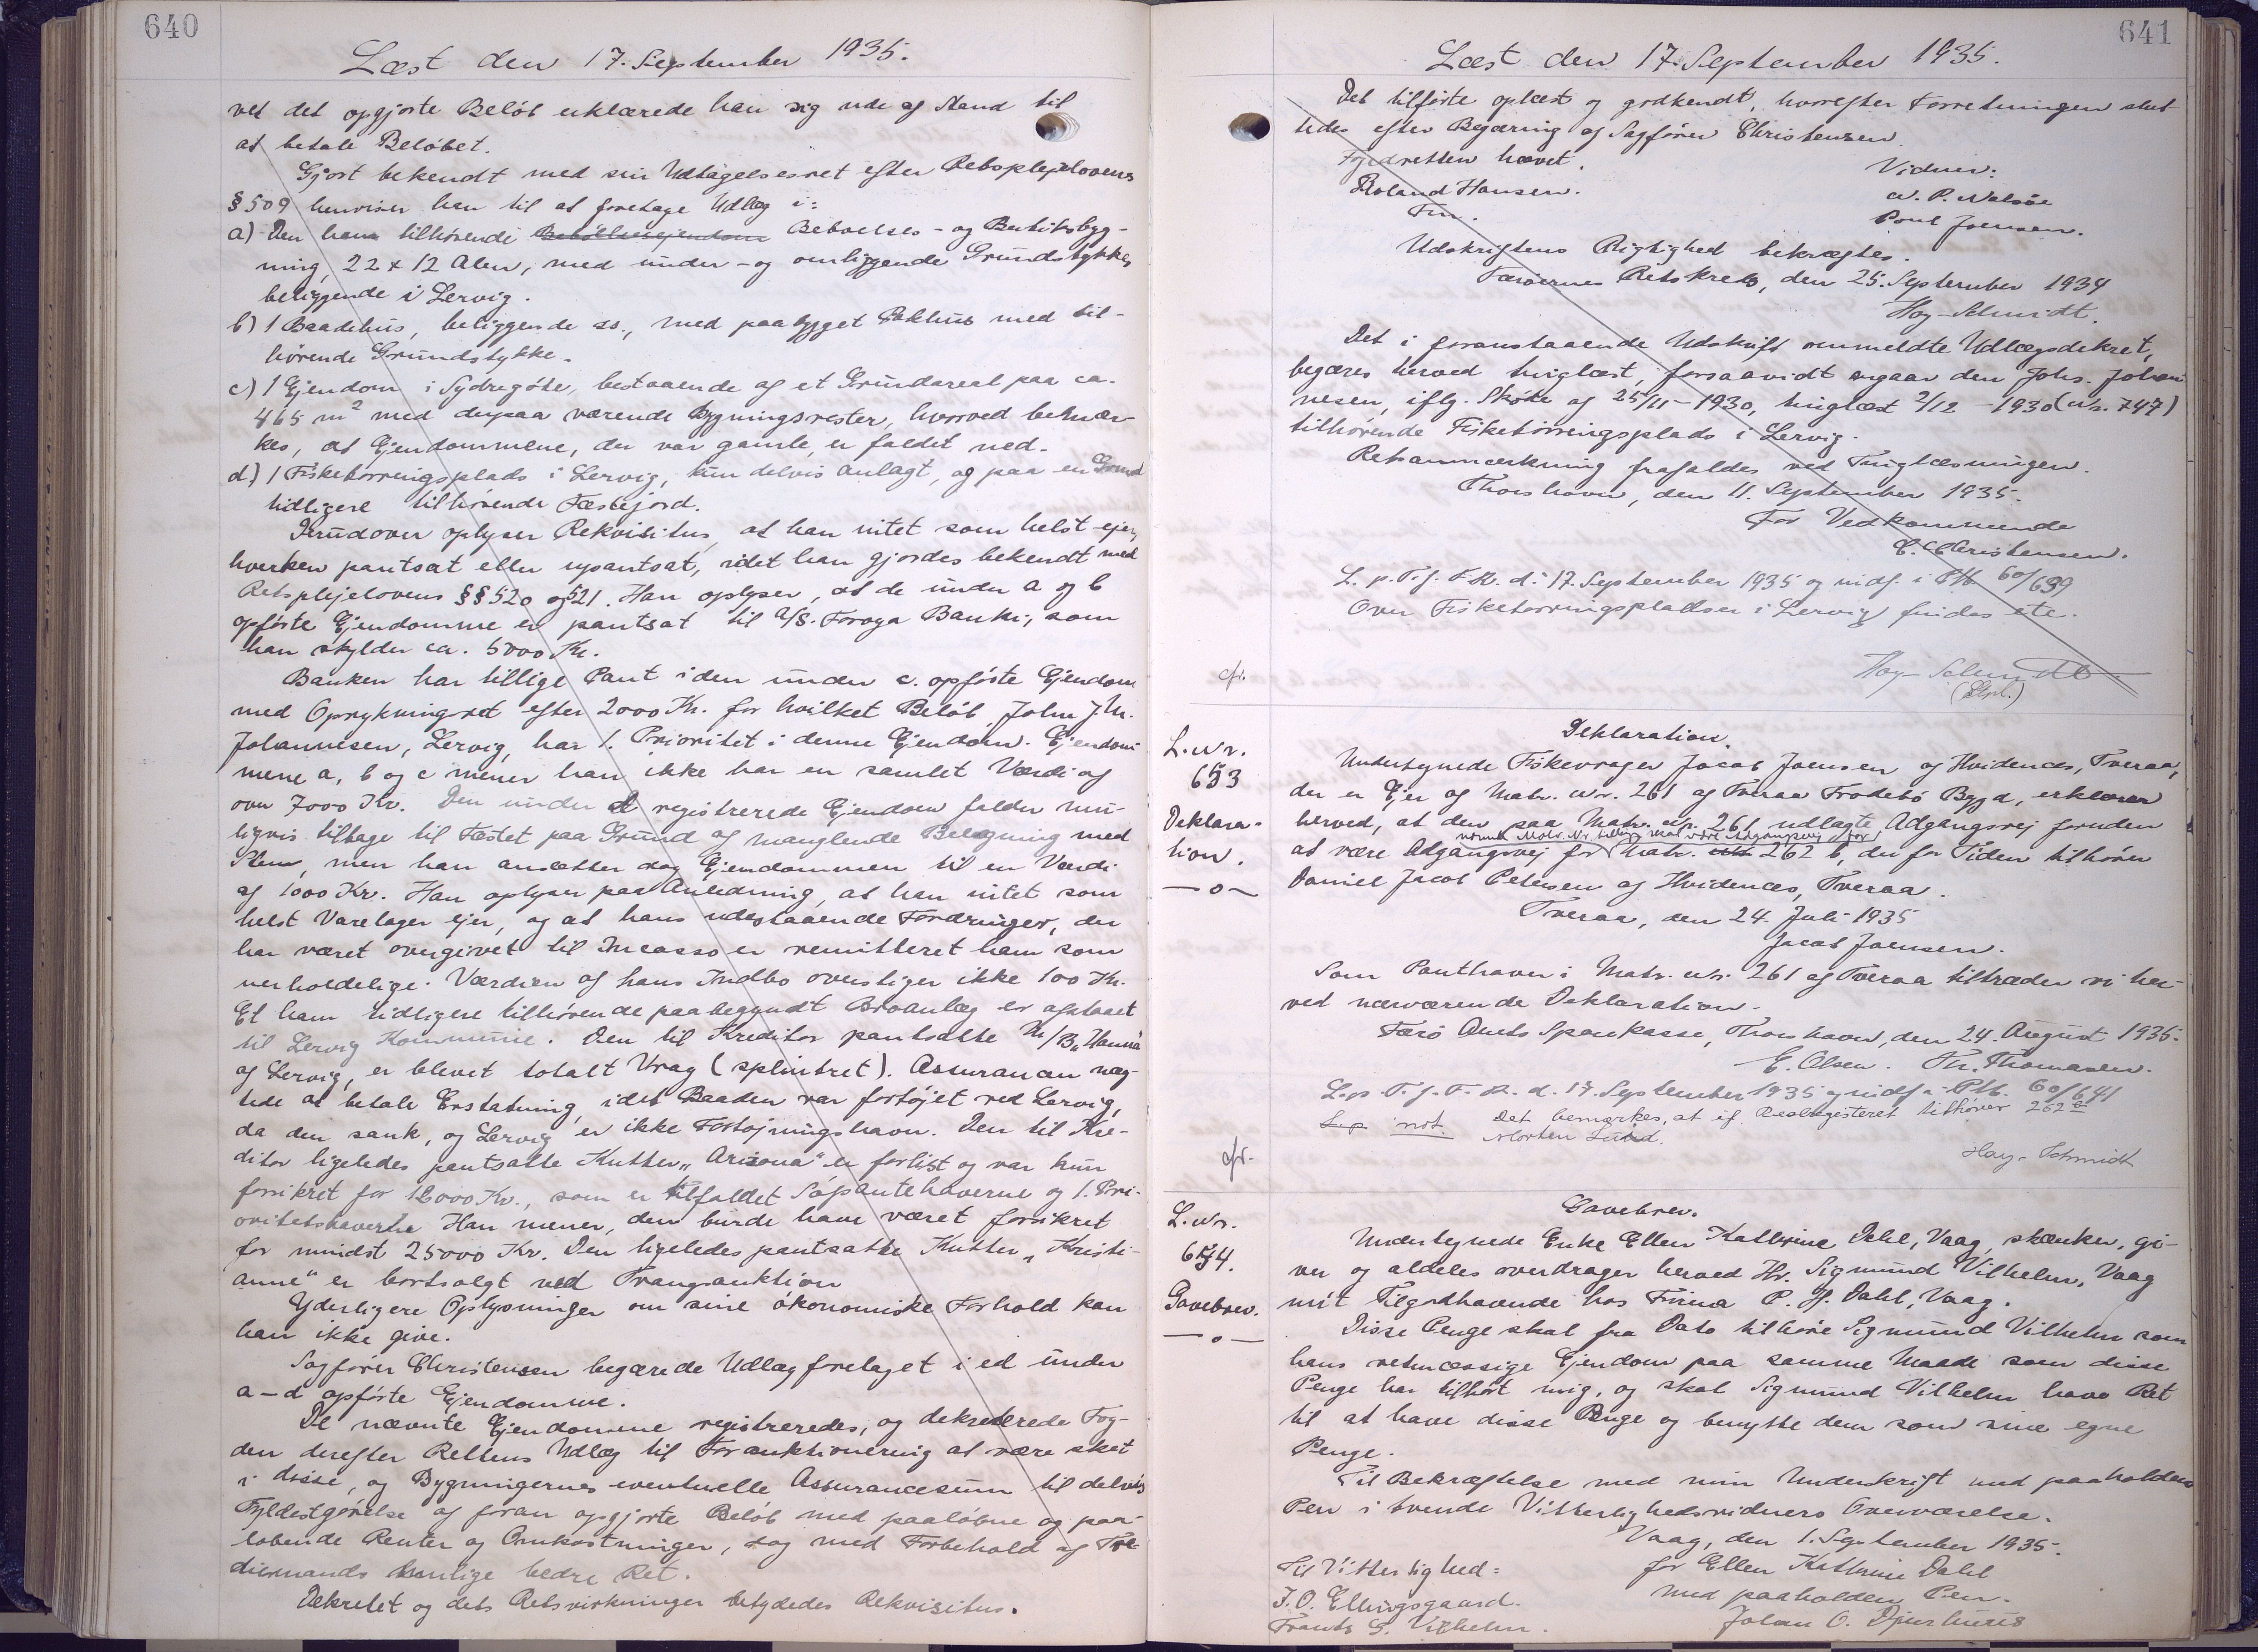 640
Læst den 17. September 1935.
ved det opgjorte Beløb erklærede han sig ude af Stand til
at betale Beløbet.
Gjort bekendt med sin Udtagelsesret efter Retsplejelovens
§ 509 henviser han til at foretage Udlæg i:
a) Den ham tilhørende Beboelses- og Butiksbyg-
ning, 22 x 12 Alen, med under- og omliggende Grundstykke,
beliggende i Lervig.
b) 1 Baadehus, beliggende ss., med paabygget Pakhus med til-
hørende Grundstykke.
c) 1 Ejendom i Sydregøte, bestaaende af et Grundareal paa ca.
465 m² med derpaa værende Bygningsrester, hvorved bemær-
kes, at Ejendommene, der var gamle, er faldet ned.
d) 1 Fisketørringsplads i Lervig, kun delvis anlagt, og paa en Grund
tidligere tilhørende Fæstejord.
Derudover oplyser Rekvisitus, at han intet som helst ejer,
hverken pantsat eller upantsat, idet han gjordes bekendt med
Retsplejelovens §§ 520 og 521. Han oplyser, at de under a og b
opførte Ejendomme er pantsat til A/S. Føroya Banki, som
han skylder ca. 5000 Kr.
Banken har tillige Pant i den under c. opførte Ejendom
med Oprykningsret efter 2000 Kr. for hvilket Beløb John J. M.
Johannesen, Lervig, har 1. Prioritet i denne Ejendom. Ejendom-
mene a, b og c mener han ikke har en samlet Værdi af
over 7000 Kr. Den under d registrerede Ejendom falder mu-
ligvis tilbage til Fæstet paa Grund af manglende Belægning med
Sten, men han ansætter dog Ejendommen til en Værdi
af 1000 Kr. Han oplyser paa Anledning, at han intet som
helst Varelager ejer, og at hans udestaaende Fordringer, der
har været overgivet til Incasso er remitteret ham som
uerholdelige. Værdien af hans Indbo overstiger ikke 100 Kr.
Et ham tidligere tilhørende paabegyndt Broanlæg er afstaaet
til Lervig Kommune. Den til Kreditor pantsatte M/B „Hanna"
af Lervig, er blevet totalt Vrag (splintret). Assurancen næg-
tede at betale Erstatning, idet Baaden var fortøjet ved Lervig,
da den sank, og Lervig er ikke Fortøjningshavn. Den til Kre-
ditor ligeledes pantsatte Kutter „Arizona" er forlist og var kun
forsikret for 12000 Kr., som er tilfaldet Søpantehaverne og 1. Pri-
oritetshaverne Han mener, den burde have været forsikret
for mindst 25000 Kr. Den ligeledes pantsatte Kutter „Kristi-
anne" er bortsolgt ved Tvangsauktion
Yderligere Oplysninger om sine økonomiske Forhold kan
han ikke give.
Sagfører Christensen begærede Udlæg foretaget i ed under
a-d opførte Ejendomme.
De nævnte Ejendomme registreredes, og dekreterede Fog-
den derefter Rettens Udlæg til Forauktionering at være sket
i disse, og Bygningernes eventuelle Assurancesum til delvis
Fyldestgørelse af foran opgjorte Beløb med paaløbne og paa-
løbende Renter og Omkostninger, dog med Forbehold af Tre-
diemands lovlige bedre Ret.
Dekretet og dets Retsvirkninger betydedes Rekvisitus.
641
Læst den 17. September 1935.
Det tilførte oplæst og godkendt, hvorefter Forretningen slut-
tedes efter Begæring af Sagfører Christensen.
Fogedretten hævet.
Vidner:
Roland Hansen.
N. P. Nolsøe
Fm.
Poul Joensen.
Udskriftens Rigtighed bekræftes.
Færøernes Retskreds, den 25. September 1934
Høy-Schmidt.
Det i foranstaaende Udskrift ommeldte Udlægsdekret,
begæres herved tinglæst, forsaavidt angaar den Johs. Johan-
nesen, iflg. Skøde af 25/11-1930, tinglæst 2/12 - 1930 (Nr. 747)
tilhørende Fisketørringsplads i Lervig.
Retsanmærkning frafaldes ved Tinglæsningen.
Thorshavn, den 11. September 1935.
For Vedkommende
C. Christensen.
L. p. T. f. F. R. d. 17. September 1935 og indf. i Ptb. 60/639
Over Fisketørringspladser i Lervig findes ete.
cfr.
Høy-Schmidt
L. Nr.
653
Deklara-
tion.
—o—
Deklaration.
Undertegnede Fiskevrager Jacob Joensen af Hvidenæs, Tveraa,
der er Ejer af Matr. Nr. 261 af Tveraa Frodebø Bygd, erklærer
herved, at den paa Matr. Nr. 261 udlagte Adgangsvej foruden
nævnte Matr. Nr. tillige skal være Adgangsvej for
at være Adgangsvej for Matr. 262 b, der for Tiden tilhører
Daniel Jacob Petersen af Hvidenæs, Tveraa.
Tveraa, den 24. Juli 1935
Jacob Joensen.
Som Panthaver i Matr. Nr. 261 af Tveraa tiltræder vi her-
ved nærværende Deklaration.
Færø Amts Sparekasse, Thorshavn, den 24. August 1935.
E. Olsen. Th. Thomasen.
L. p. T. f. F. R. d. 17 September 1935 og indf. i Ptb. 60/641
L. p not. Det bemærkes, at if. Realregisteret tilhører 262
Morten
cfr.
Høy-Schmidt
L. Nr.
654.
Gavebrev.
—o—
Gavebrev.
Undertegnede Enke Ellen Kathrine Dahl, Vaag, skænker, gi-
ver og aldeles overdrager herved Hr. Sigmund Vilhelm, Vaag
mit Tilgodehavende hos Firma P. H. Dahl, Vaag.
Disse Penge skal fra Dato tilhøre Sigmund Vilhelm som
hans retmæssige Ejendom paa samme Maade som disse
Penge har tilhørt mig, og skal Sigmund Vilhelm have Ret
til at have disse Penge og benytte dem som sine egne
Penge.
Til Bekræftelse med min Underskrift med paaholden
Pen i tvende Vitterlighedsvidners Overværelse.
Vaag, den 1. September 1935.
Til Vitterlighed:
for Ellen Kathrine Dahl
J. O. Ellingsgaard.
med paaholden Pen.
Frants G. Vilhelm.
Johan O. Djurhuus